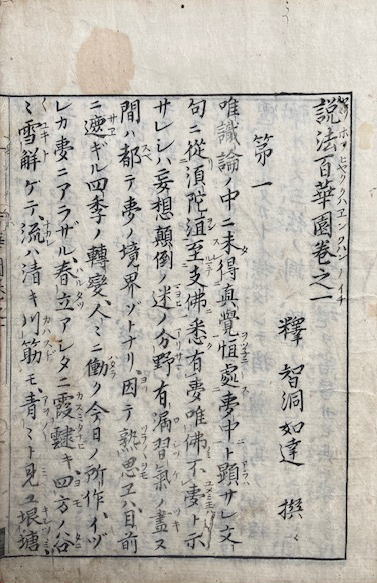 説法百華園巻之一
釋 智洞如達 撰
第一
唯識論ノ中ニ未得真覺恒處夢中ト顕サレ文
句ニ従須陀洹至支佛悉有夢唯佛不夢ト示
サレシハ妄想顛倒ノ迷ノ分野有漏習氣ノ盡ヌ
間ハ都テ夢ノ境界ゾトナリ因テ熟思エハ目前
ニ遮ギル四季ノ轉變人ミニ働ク今日ノ所作イヅ
レカ夢ニアラザル春立アシタニ霞靆キ四方ノ谷
ミ雪解ケテ流ハ清キ川筋モ青ミト見ユ垠塘